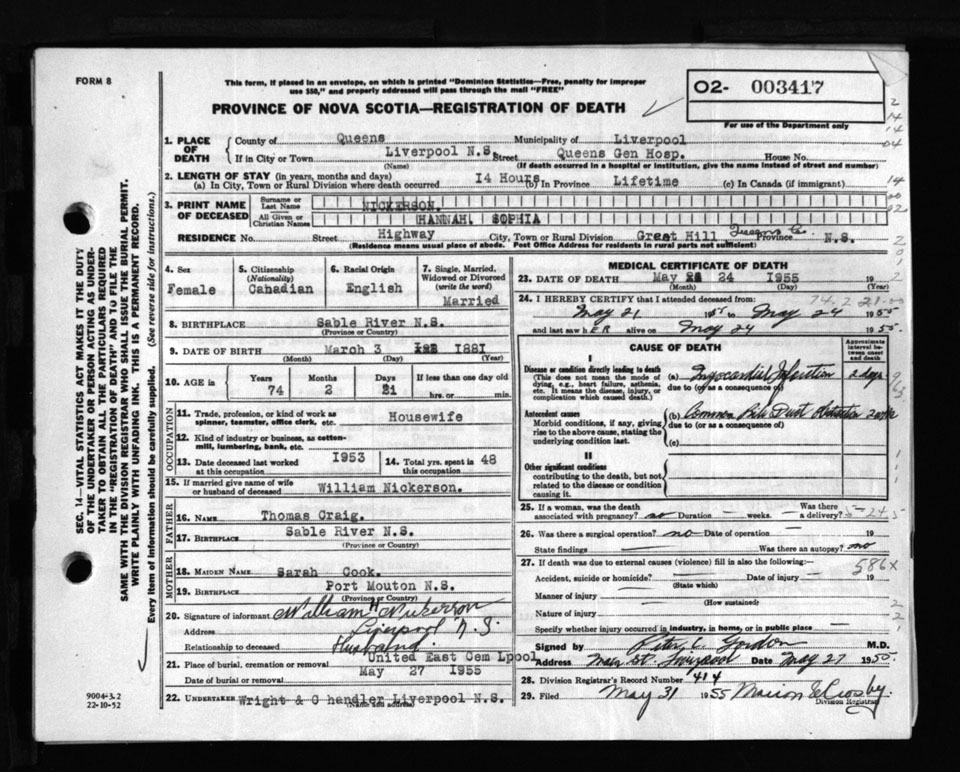 FORM 8
This form, if placed in an envelope, on which is printed "Dominion Statistics—Free, penalty for improper
use $50," and properly addressed will pass through the mail "FREE"
O2- 003417
PROVINCE OF NOVA SCOTIA—REGISTRATION OF DEATH
For use of the Department only
1. PLACE OF DEATH
County of Queens Municipality of Liverpool
If in City or Town Liverpool N.S. Street Queens Gen Hosp. House No.
(Name) (If death occurred in a hospital or institution, give the name instead of street and number)
2. LENGTH OF STAY (in years, months and days)
(a) In City, Town or Rural Division where death occurred 14 Hours (b) In Province Lifetime (c) In Canada (if immigrant)
3. PRINT NAME OF DECEASED
Surname or Last Name NICKERSON.
All Given or Christian Names HANNAH. SOPHIA
RESIDENCE No. Street Highway City, Town or Rural Division Great Hill Queens Co. Province N.S.
(Residence means usual place of abode. Post Office Address for residents in rural parts not sufficient)
4. Sex Female
5. Citizenship (Nationality) Canadian
6. Racial Origin English
7. Single, Married, Widowed or Divorced (write the word) Married
8. BIRTHPLACE Sable River N.S.
(Province or Country)
9. DATE OF BIRTH March 3 1881
(Month) (Day) (Year)
10. AGE in Years 74 Months 2 Days 21 If less than one day old hrs. or min.
OCCUPATION
11. Trade, profession, or kind of work as spinner, teamster, office clerk, etc. Housewife
12. Kind of industry or business, as cotton-mill, lumbering, bank, etc.
13. Date deceased last worked at this occupation 1953
14. Total yrs. spent in this occupation 48
15. If married give name of wife or husband of deceased William Nickerson.
FATHER
16. NAME Thomas Craig.
17. BIRTHPLACE Sable River N.S.
(Province or Country)
MOTHER
18. MAIDEN NAME Sarah Cook.
19. BIRTHPLACE Port Mouton N.S.
(Province or Country)
20. Signature of informant William H Nickerson
Address Liverpool N.S.
Relationship to deceased Husband
21. Place of burial, cremation or removal United East Cem Lpool
Date of burial or removal May 27 1955
22. UNDERTAKER Wright & Chandler Liverpool N.S.
(Name and address)
MEDICAL CERTIFICATE OF DEATH
23. DATE OF DEATH May 24 1955 19
(Month) (Day)
24. I HEREBY CERTIFY that I attended deceased from:
May 21 1955 to May 24 1955
and last saw h ER alive on May 24 1955.
CAUSE OF DEATH
Approximate interval between onset and death
I
Disease or condition directly leading to death
(This does not mean the mode of dying, e.g., heart failure, asthenia, etc. It means the disease, injury, or complication which caused death.)
(a) Myocardial Infarction 2 days
due to (or as a consequence of)
Antecedent causes
Morbid conditions, if any, giving rise to the above cause, stating the underlying condition last.
(b) Common Bile Duct
due to (or as a consequence of)
(c)
II
Other significant conditions
contributing to the death, but not related to the disease or condition causing it.
25. If a woman, was the death associated with pregnancy? no Duration — weeks. Was there a delivery?
26. Was there a surgical operation? no Date of operation —
State findings — Was there an autopsy? no
27. If death was due to external causes (violence) fill in also the following:— 586x
Accident, suicide or homicide? — Date of injury — 19
(State which)
Manner of injury —
(How sustained)
Nature of injury —
Specify whether injury occurred in industry, in home, or in public place —
Signed by Gordon M.D.
Address Main St. Liverpool Date May 27 1955
28. Division Registrar's Record Number 414
29. Filed May 31 1955 Marion E Crosby.
Division Registrar
SEC. 14—VITAL STATISTICS ACT MAKES IT THE DUTY
OF THE UNDERTAKER OR PERSON ACTING AS UNDER-
TAKER TO OBTAIN ALL THE PARTICULARS REQUIRED
IN THE "REGISTRATION OF DEATH" AND TO FILE THE
SAME WITH THE DIVISION REGISTRAR WHO SHALL ISSUE THE BURIAL PERMIT.
WRITE PLAINLY WITH UNFADING INK. THIS IS A PERMANENT RECORD.
Every item of information should be carefully supplied. (See reverse side for instructions.)
9004-3.2
22-10-52